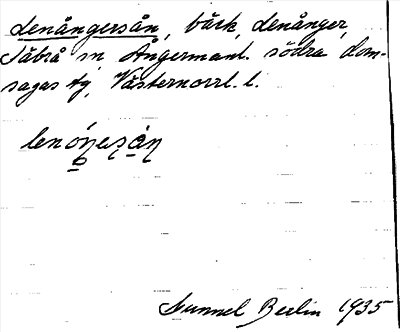 Lenångersån, bäck, Lenånger,
Säbrå sn Ångermanl. södra dom-
sagas tg, Västernorrl. l.
lenóŋesåŋ
Gunnel Berlin 1935